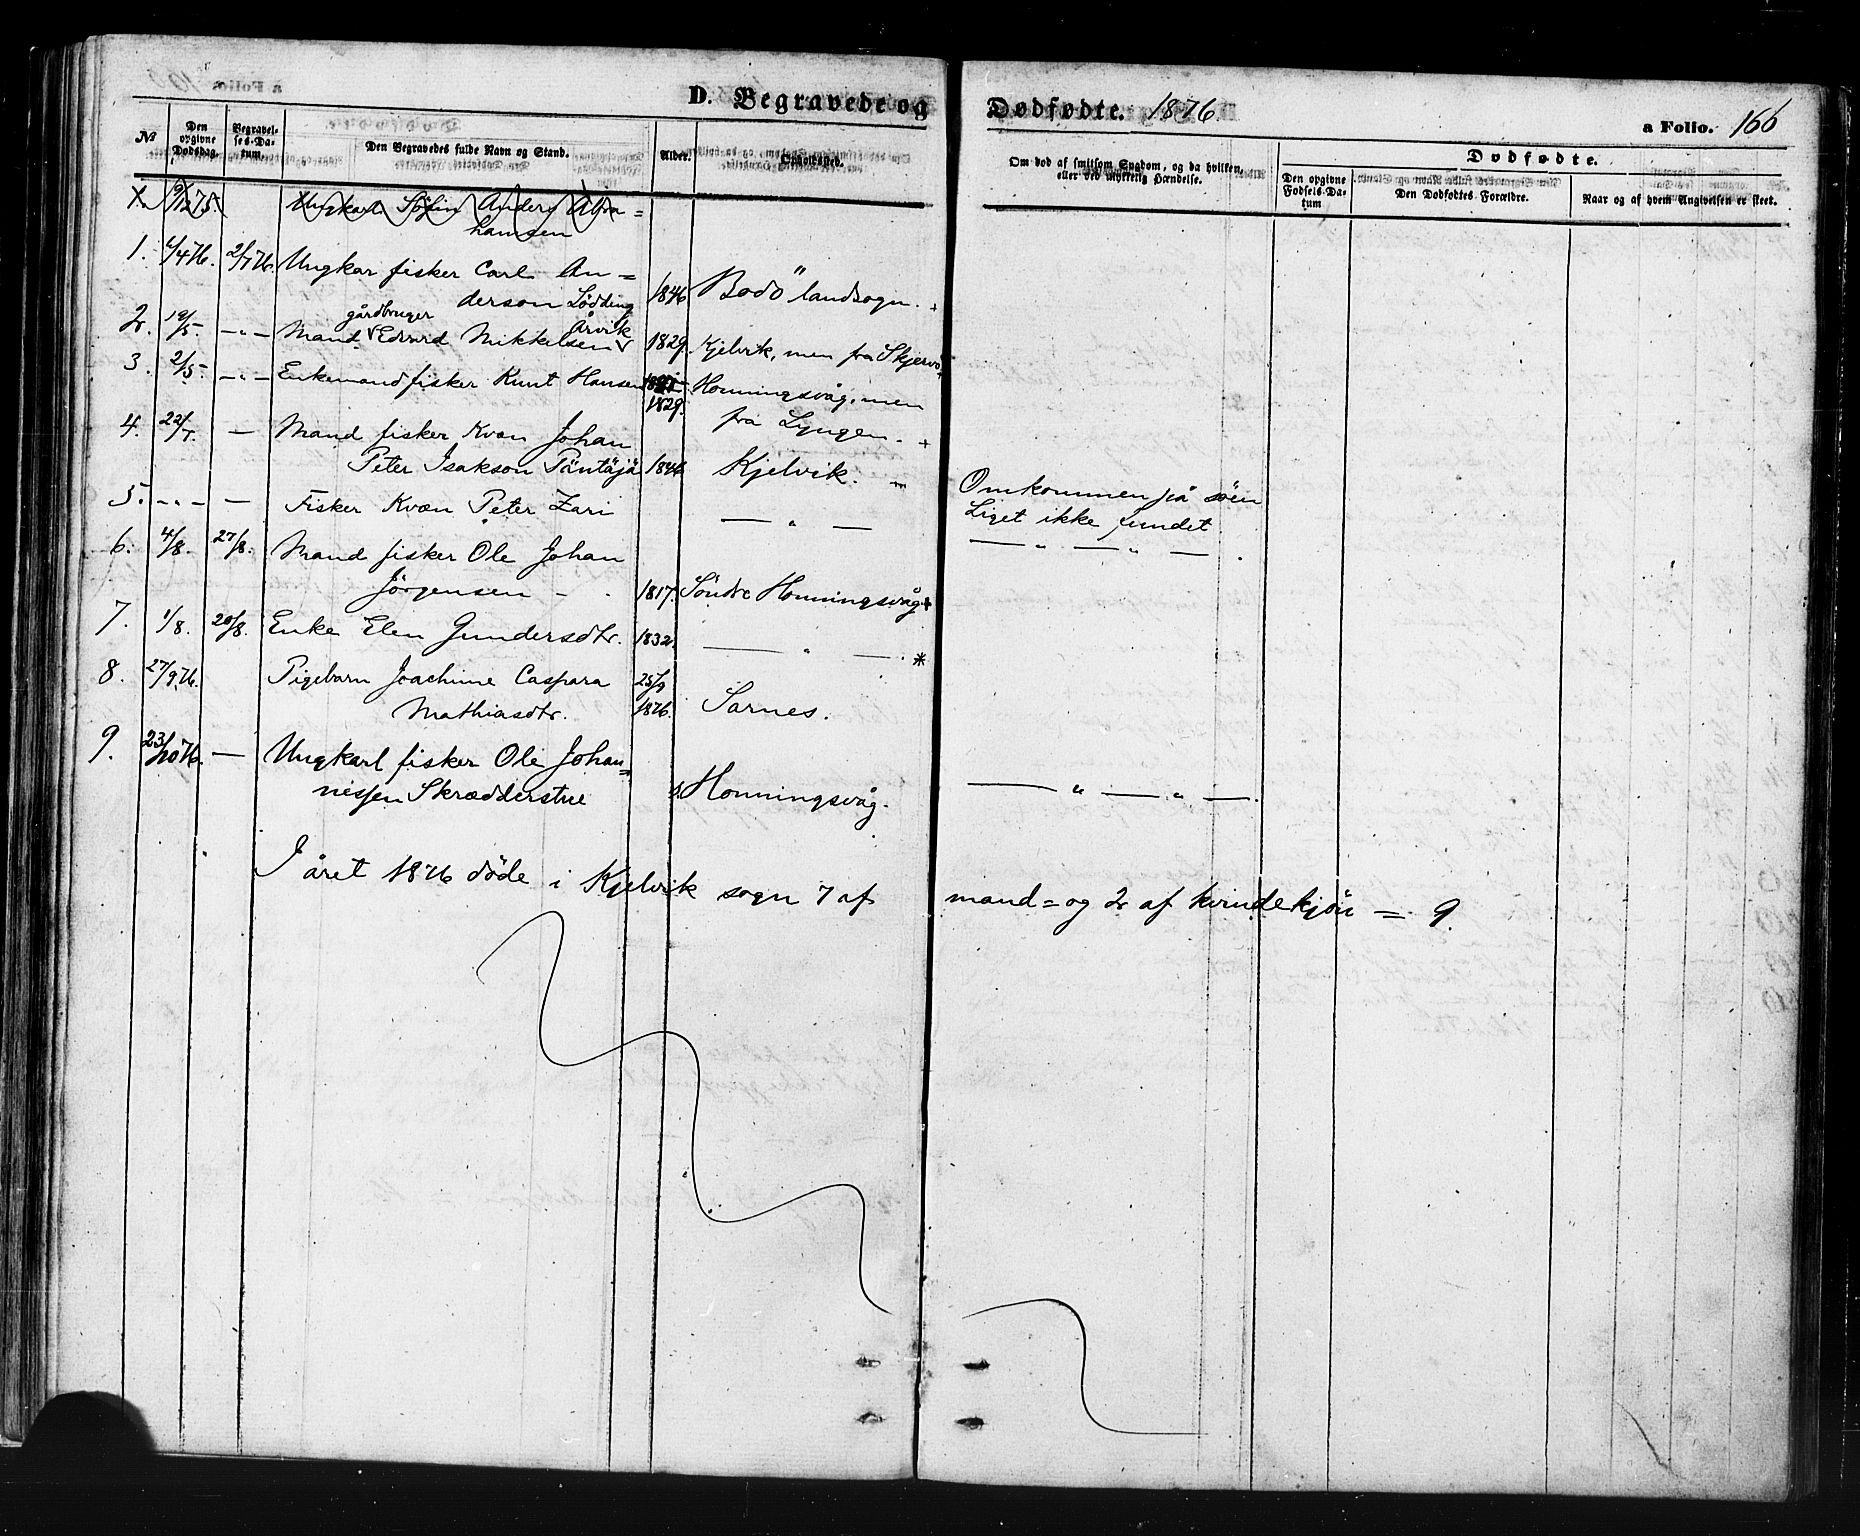 D. Begravede og Dødfødte. 1876.
a Folio. 166
No
Den opgivne Dødsdag.
Begravelses-Datum.
Den Begravedes fulde Navn og Stand.
Alder.
Opholdssted.
Om død af smitsom Sygdom, og da hvilken, eller ved ulykkelig Hændelse.
Dødfødte.
Den opgivne Fødsels-Datum
Den Dødfødtes Forældre.
Naar og af hvem Angivelsen er skeet.
Ungkarl Anders Abra=
hamsen
1. 2/7 76 Ungkar fisker Carl An=
derson Lödding 1846 Bodö landsogn.
gårdbruger Årvik
2. 19/5. — " — Mand Edvard Mikkelsen 1829. Kjelvik, men fra Skjervö
3. 2/5. — " — Enkemand fisker Knut Hansen Honningsvåg, men
1829. fra Lyngen. +
4. 22/7. — Mand fisker Kvæn Johan
Peter Isakson Päntäjä 1846 Kjelvik. Omkommen på söen
5. — " — — Fisker Kvæn Peter Zari — " — Liget ikke fundet
6. 4/8. 27/8. Mand fisker Ole Johan — " — " — .
Jörgensen - 1817. Söndre Honningsvåg +
7. 1/8. 20/8. Enke Elen Gundersdtr. 1832. — " — . *
8. 27/9 76. Pigebarn Joachime Caspara 25/9
Mathiasdtr. 1876. Sarnes.
9. 23/10 76. — Ungkarl fisker Ole Johan=
nessen Skrædderstue s. Honningsvåg. — " — " — .
I året 1876 döde i Kjelvik sogn 7 af mand= og 2 af kvindekjön = 9.